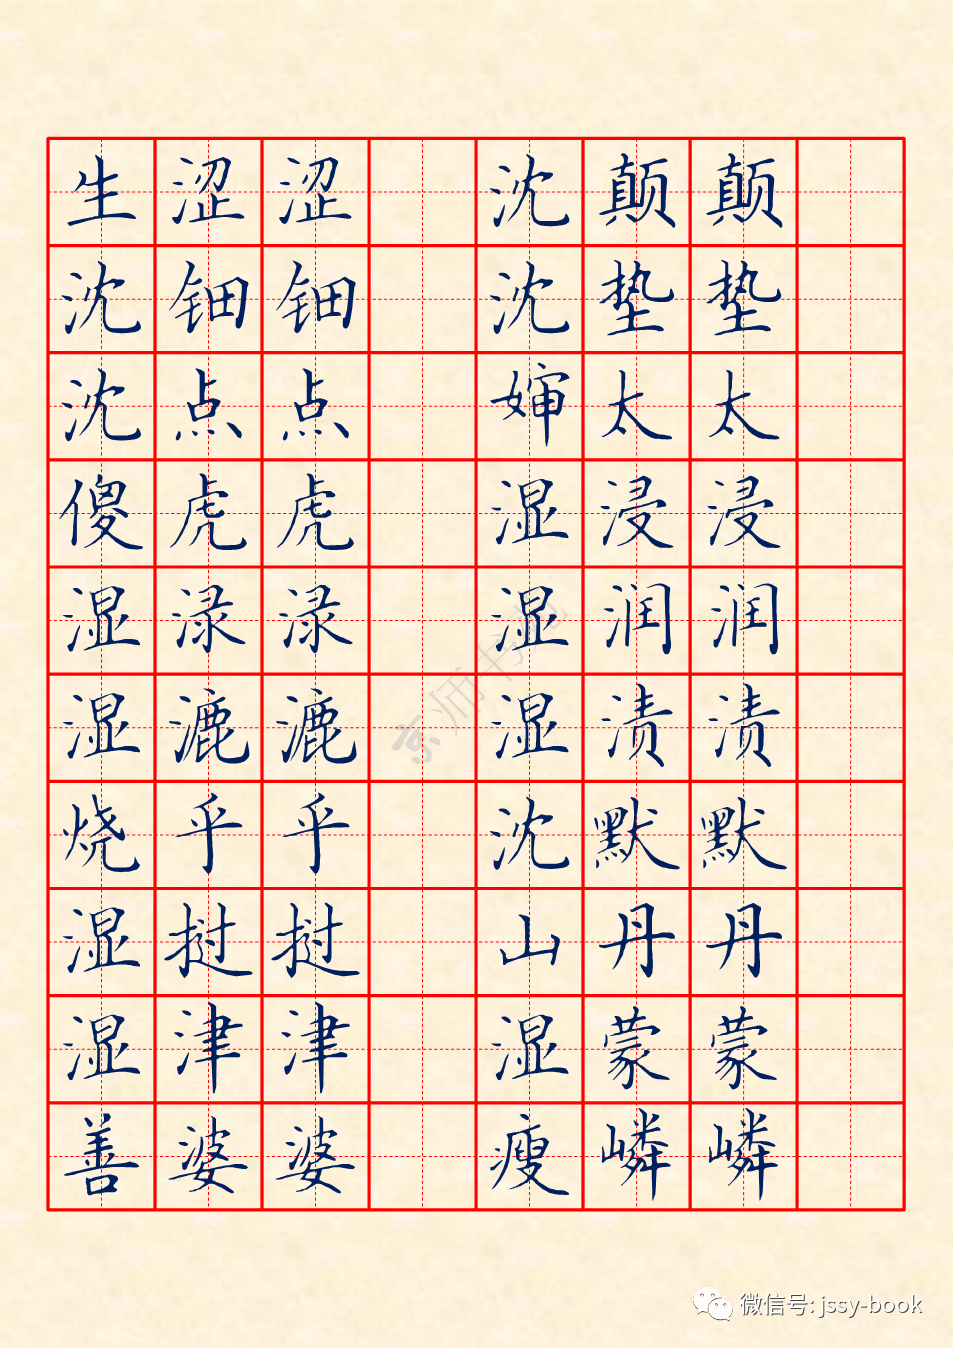 生涩涩 沈颠颠
沈钿钿 沈垫垫
沈点点 婶太太
傻虎虎 湿浸浸
湿渌渌 湿润润
湿漉漉 湿渍渍
烧乎乎 沈默默
湿挝挝 山丹丹
湿津津 湿蒙蒙
善婆婆 瘦嶙嶙
京师书苑
微信号: jssy-book